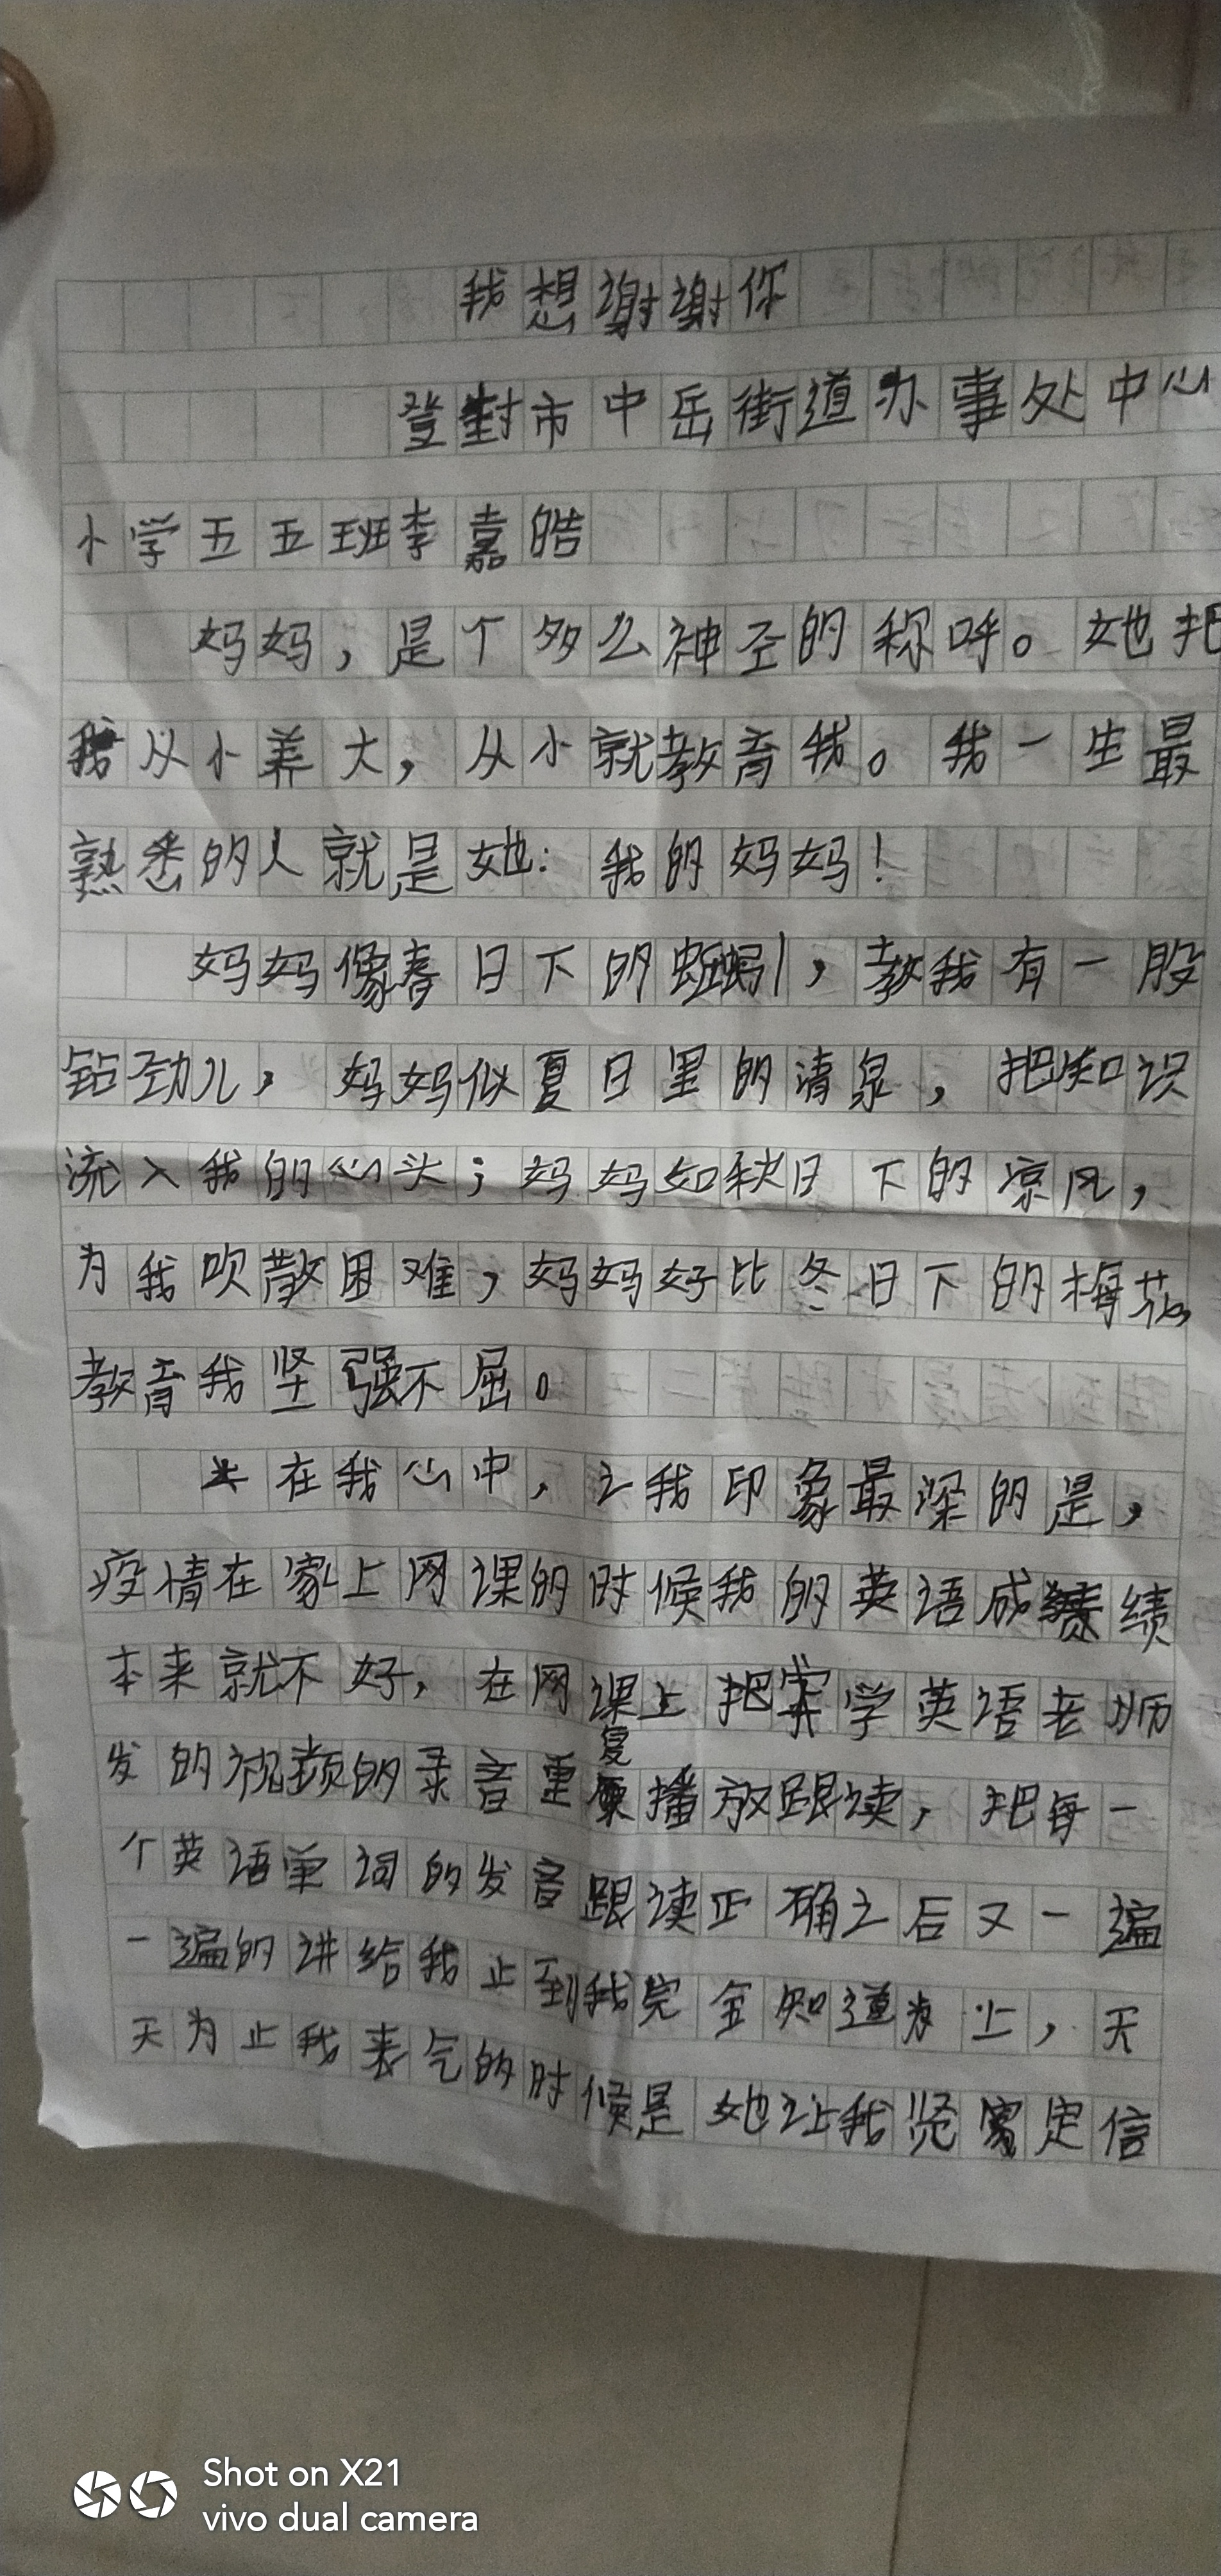 我想谢谢你
登封市中岳街道办事处中心
小学五五班李嘉皓
妈妈，是个多么神圣的称呼。她把
我从小养大，从小就教育我。我一生最
熟悉的人就是她：我的妈妈！
妈妈像春日下的蚯蚓，教我有一股
钻劲儿，妈妈似夏日里的清泉，把知识
流入我的心头；妈妈如秋日下的凉风，
为我吹散困难，妈妈好比冬日下的梅花，
教育我坚强不屈。
在我心中，之我印象最深的是，
疫情在家上网课的时候我的英语成绩
本来就不好，在网课上把学英语老师
发的视频的录音重复播放跟读，把每一
个英语单词的发音跟读正确之后又一遍
一遍的讲给我止到我完全知道为止，天
天为止我丧气的时候是她让我坚定信
Shot on X21
vivo dual camera